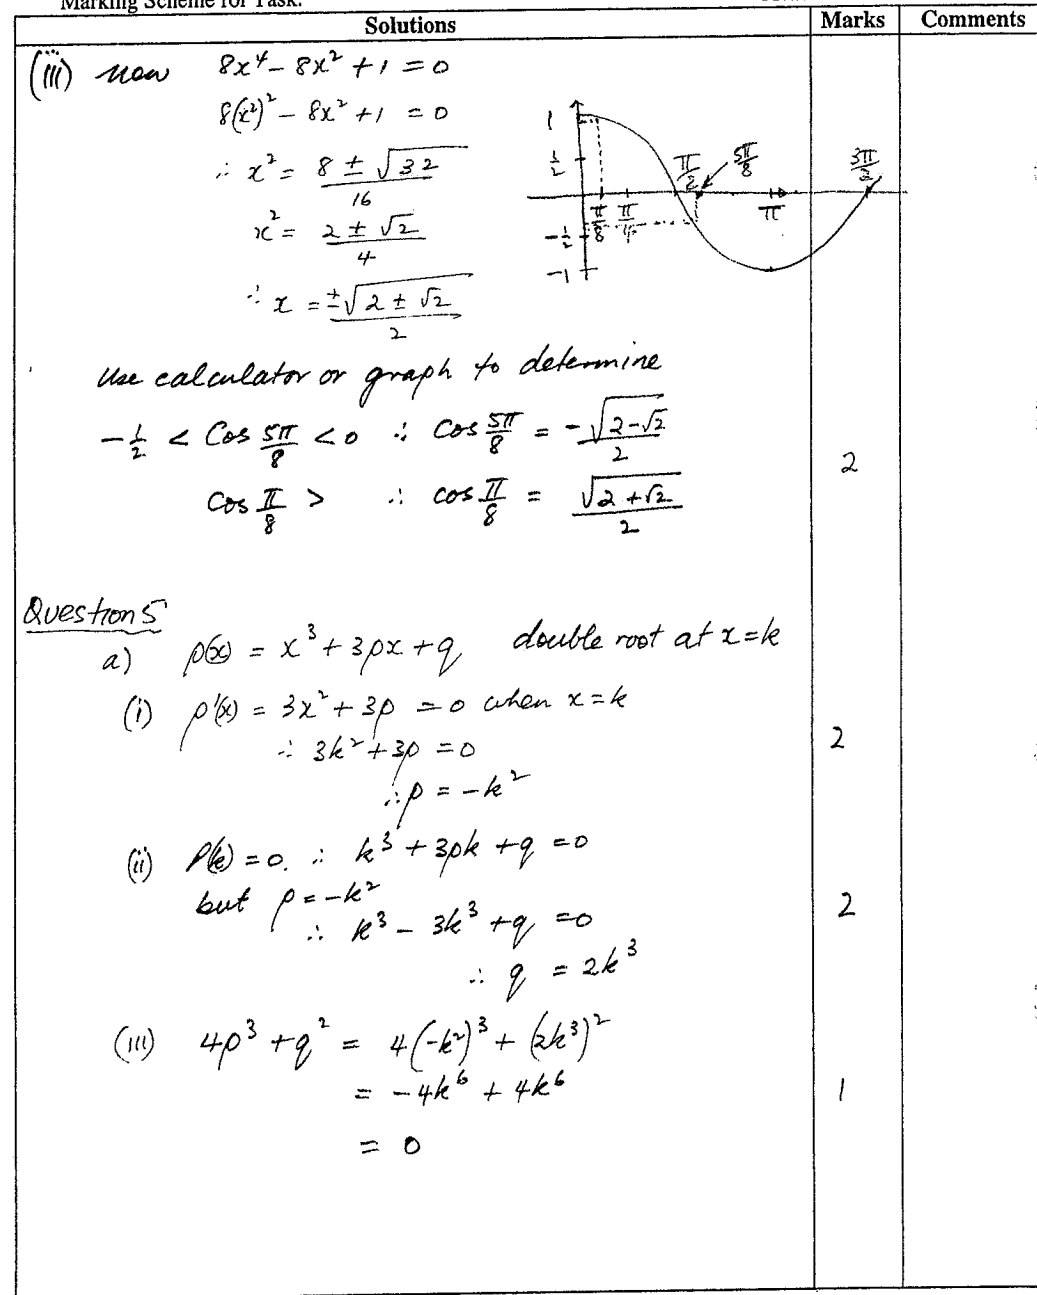 Marking Scheme for Task:
Solutions Marks Comments
(iii) now 8x⁴ − 8x² + 1 = 0
8(x²)² − 8x² + 1 = 0
∴ x² = (8 ± √32)/16
x² = (2 ± √2)/4
∴ x = ±√(2 ± √2)/2
1
1/2
−1/2
−1
π/8 π/4 π/2 5π/8 π 3π/2
Use calculator or graph to determine
−1/2 < Cos 5π/8 < 0 ∴ cos 5π/8 = −√(2−√2)/2
2
Cos π/8 > ∴ cos π/8 = √(2+√2)/2
Question 5
a) p(x) = x³ + 3px + q double root at x=k
(i) p'(x) = 3x² + 3p = 0 when x=k
∴ 3k² + 3p = 0 2
∴ p = −k²
(ii) P(k) = 0. ∴ k³ + 3pk + q = 0
but p = −k² 2
∴ k³ − 3k³ + q = 0
∴ q = 2k³
(iii) 4p³ + q² = 4(−k²)³ + (2k³)²
= −4k⁶ + 4k⁶ 1
= 0